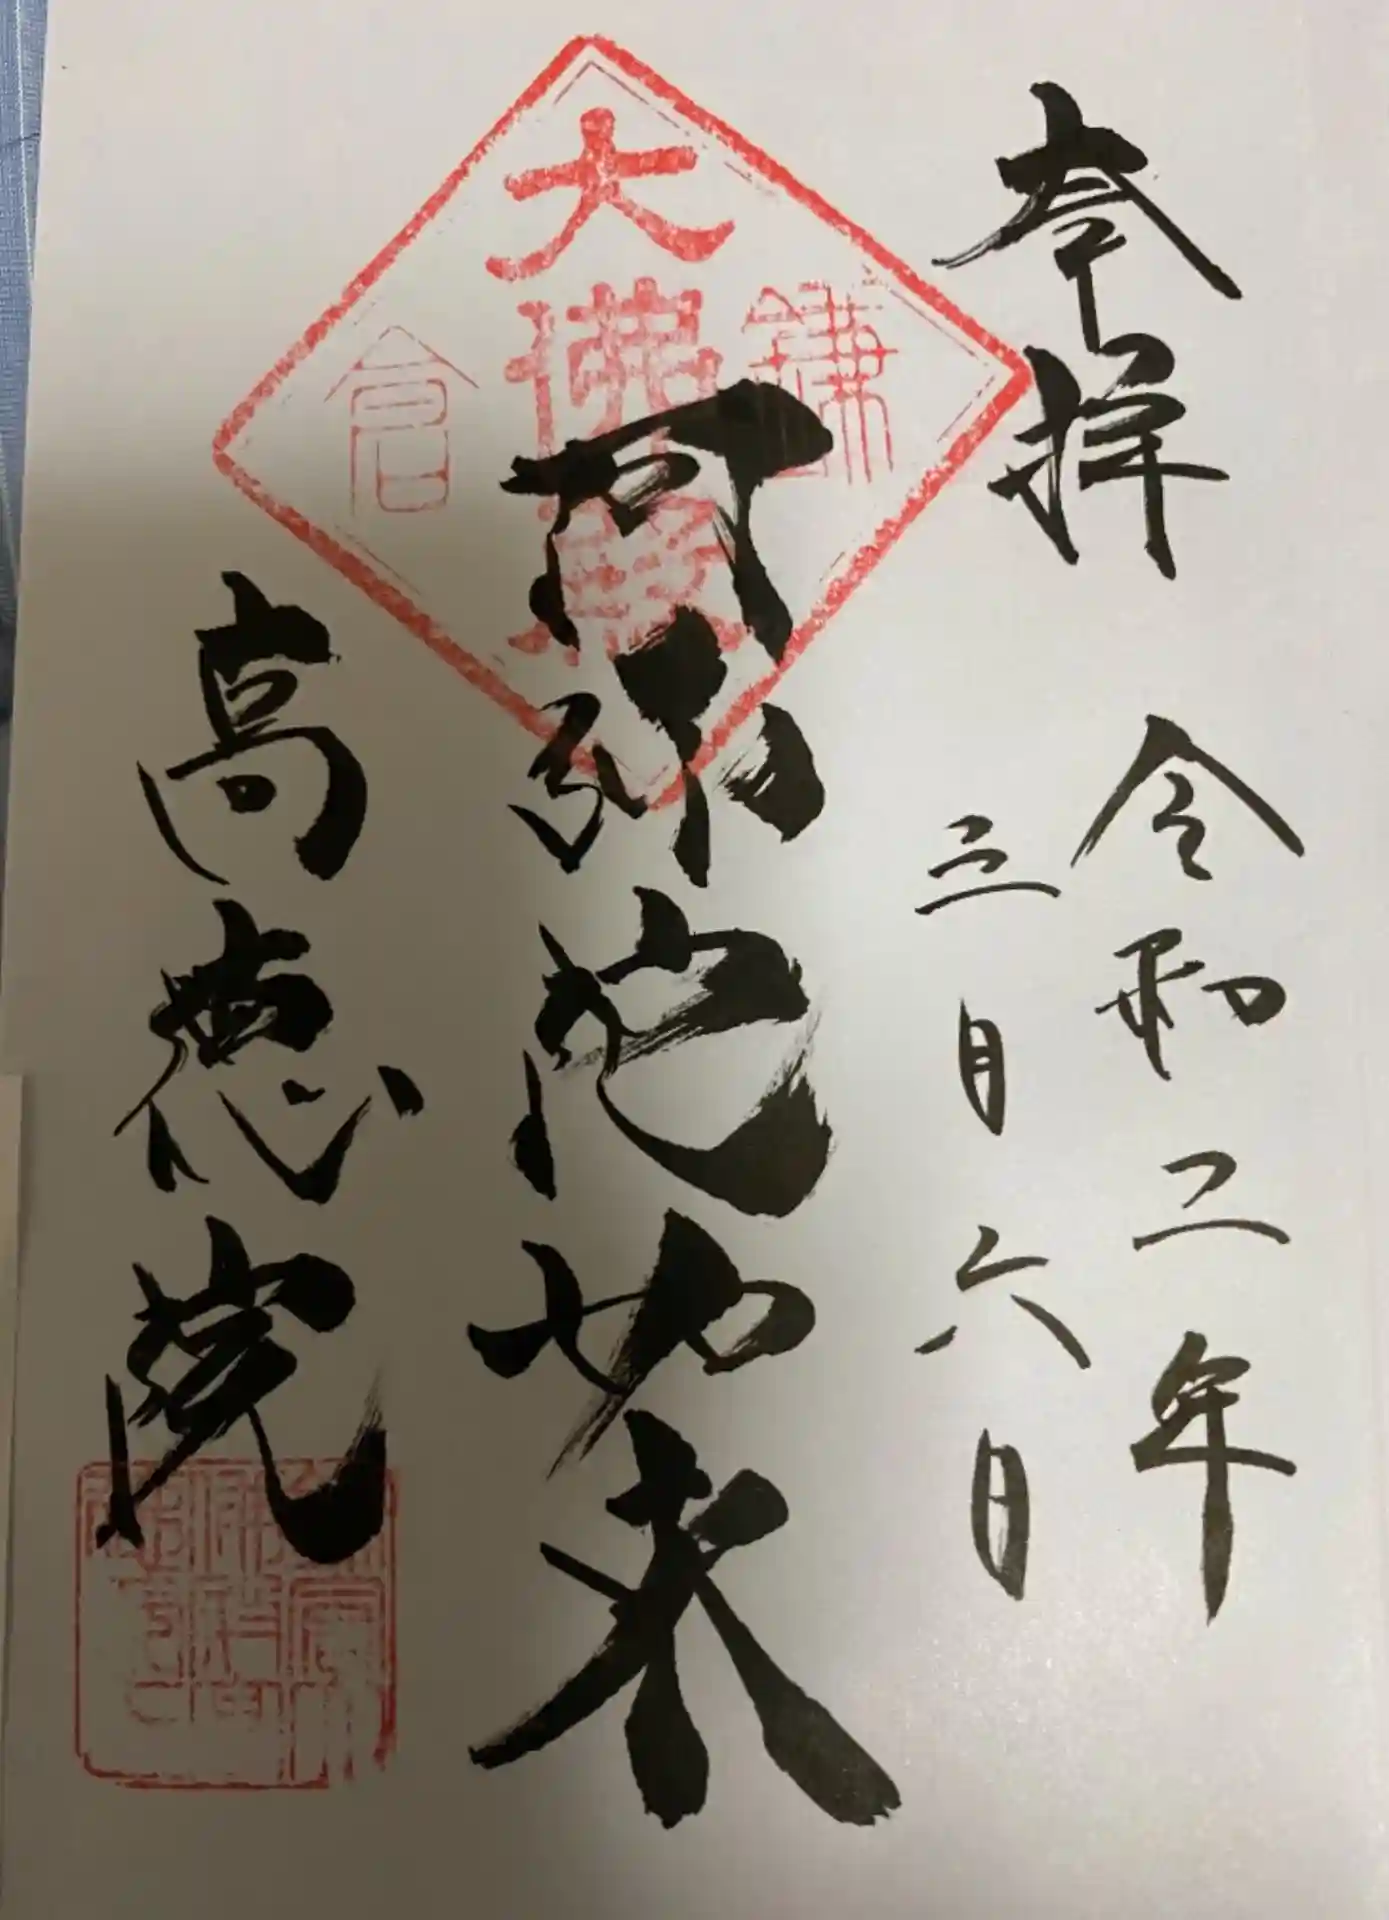 奉拝
令和二年
三月六日
鎌倉
大佛殿
阿弥陀如来
高徳院